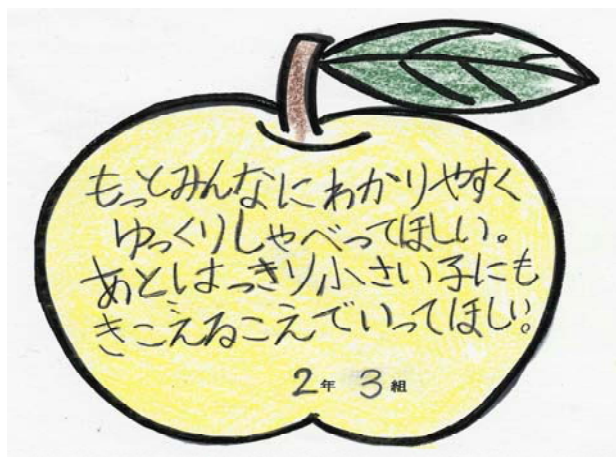 もっとみんなにわかりやすく
ゆっくりしゃべってほしい。
あとはっきり小さい子にも
きこえるこえでいってほしい。
2年 3組